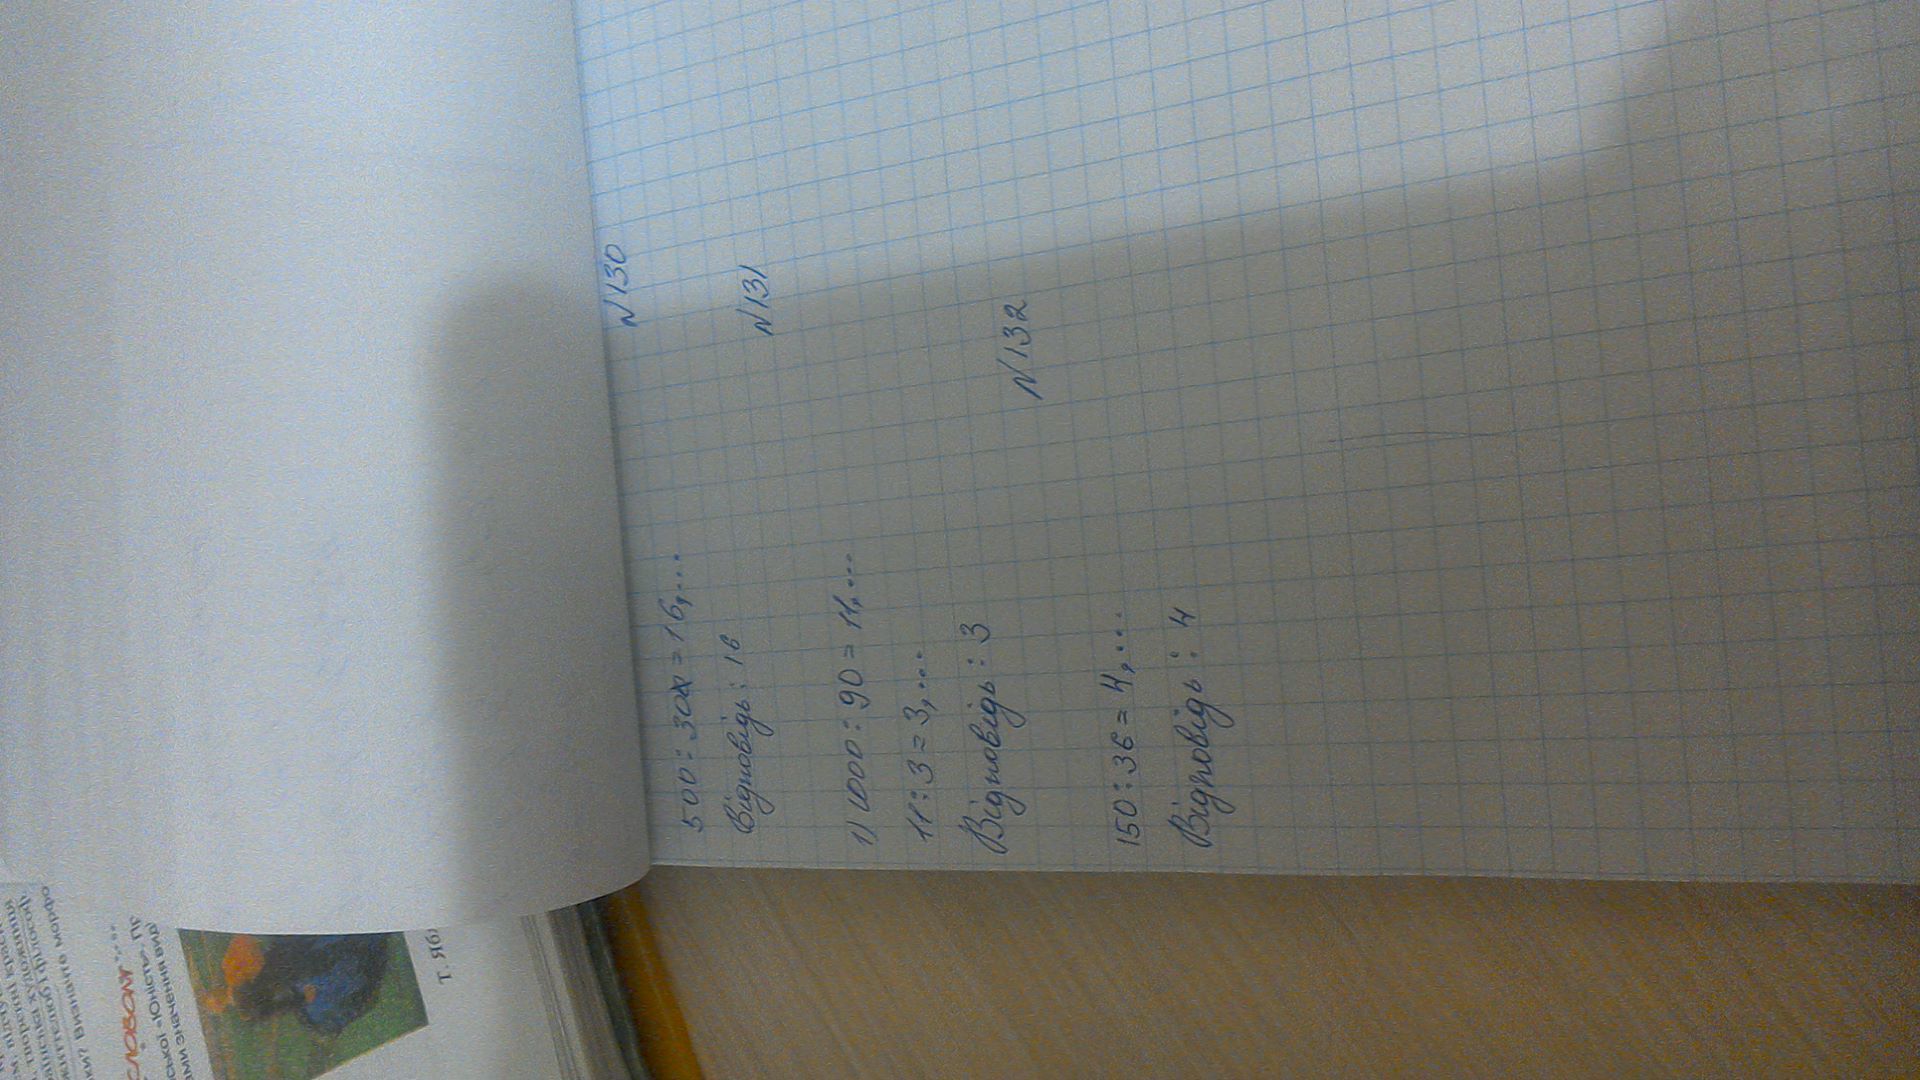 N130
500:30=16,...
Відповідь: 16
N131
1) 1000:90=11,...
11:3=3,...
Відповідь: 3
N132
150:36=4,...
Відповідь: 4
СЛОВОЛЮГ
«Юність».
значення
ки? Визначте морфо
Т. Ябл